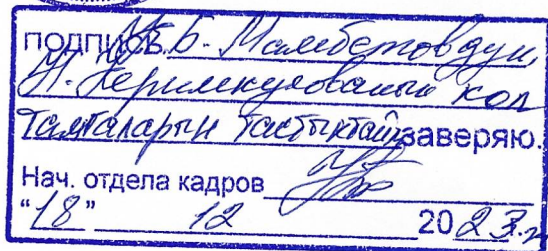 подпись Б. Мамбетовдун,
Н. Керимкуловanын кол
тамгаларын тастыктайм заверяю.
Нач. отдела кадров
“18” 12 2023.г